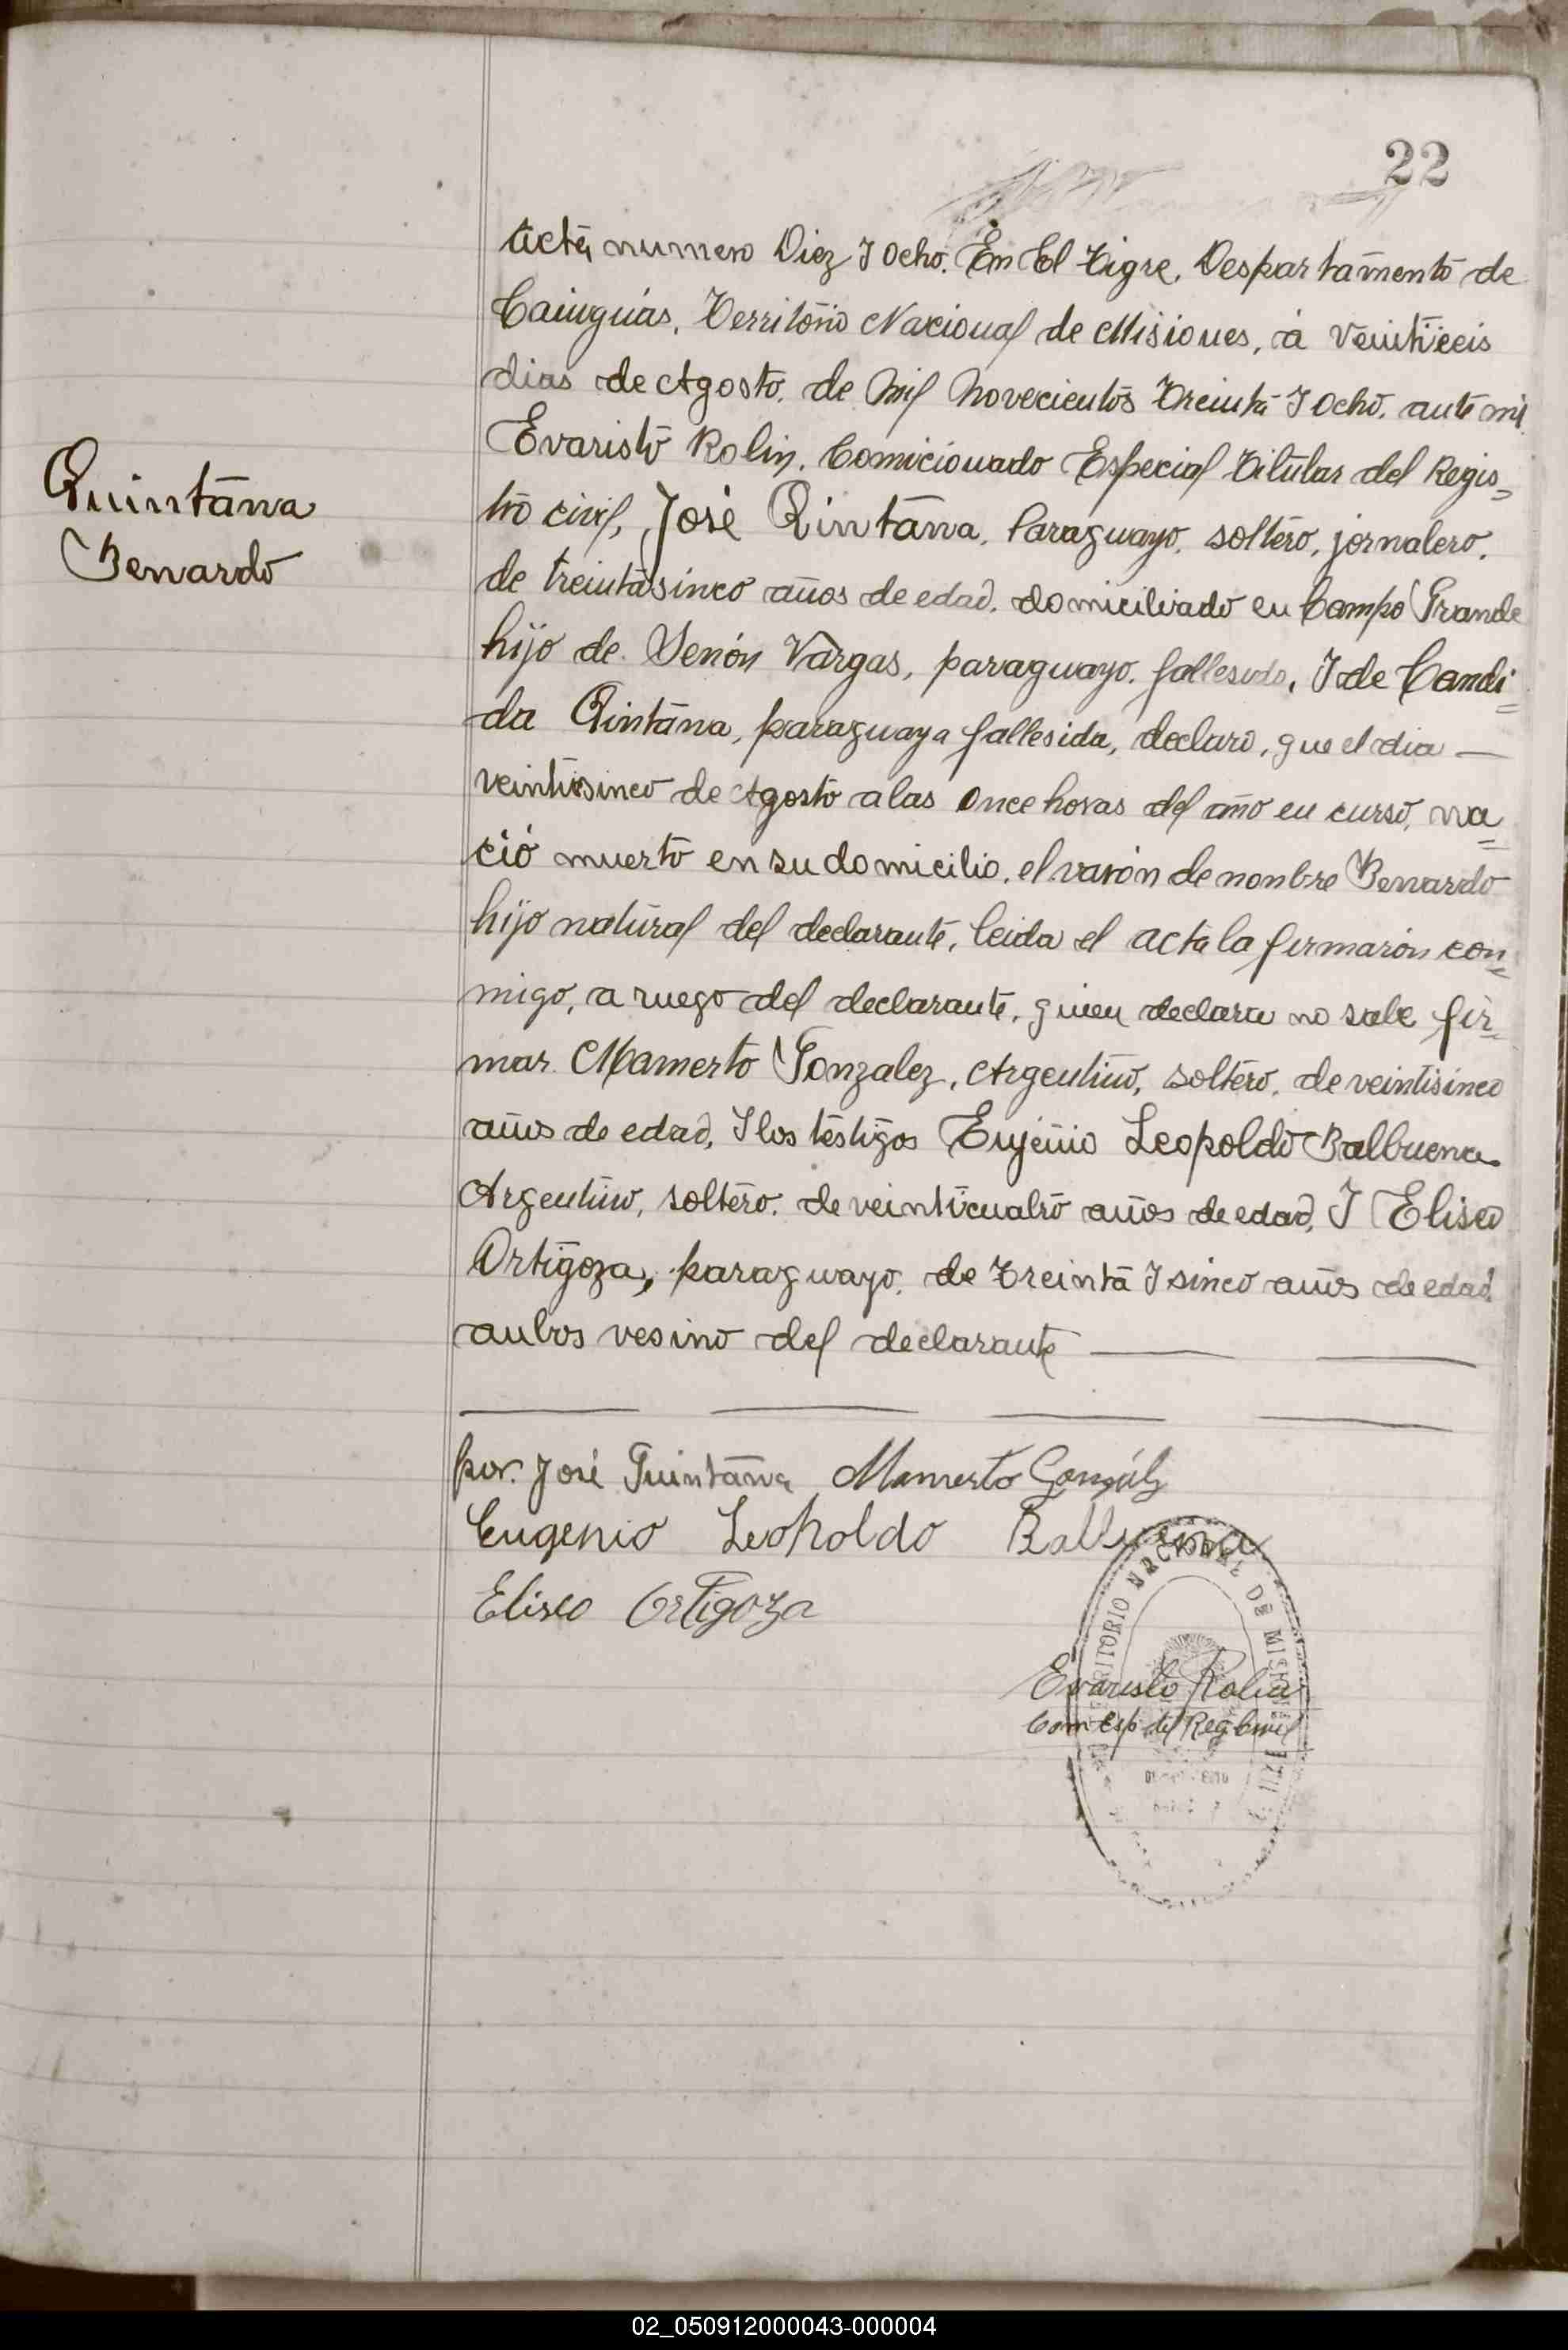 22
Acta numero Diez I Ocho. En El Tigre, Despartamento de
Cainguás, Territorio Nacional de Misiones, á veintiseis
dias de Agosto. de mil novecientos Treinta I Ocho. ante mi
Evaristo Rolin. Comicionado Especial Titular del Regis=
tro civil, José Qintana, Paraguayo, soltero, jornalero.
de treintasinco años de edad. domiciliado en Campo Grande
hijo de Senón Vargas, paraguayo. fallesido, I de Candi=
da Qintana, paraguaya fallesida, declaro, que el dia —
veintisinco de Agosto a las Once horas del año en curso, na=
ció muerto en su domicilio. el varón de nonbre Benardo
hijo natural del declarante, leida el acta la firmarón con=
migo, a ruego del declarante, quien declara no sabe fir=
mar Mamerto Gonzalez, Argentino, soltero. de veintisinco
años de edad, I los testigos Eujenio Leopoldo Balbuena
Argentino, soltero. de veinticuatro años de edad, I Eliseo
Ortigoza, paraguayo. de Treinta I sinco años de edad.
anbos vesino del declarante
Quintana
Benardo
por. José Quintana Mamerto González
Eugenio Leopoldo Balbuena
Eliseo Ortigoza
TERRITORIO NACIONAL DE MISIONES
Evaristo Rolin
Com Esp del Reg Civil
02_050912000043-000004